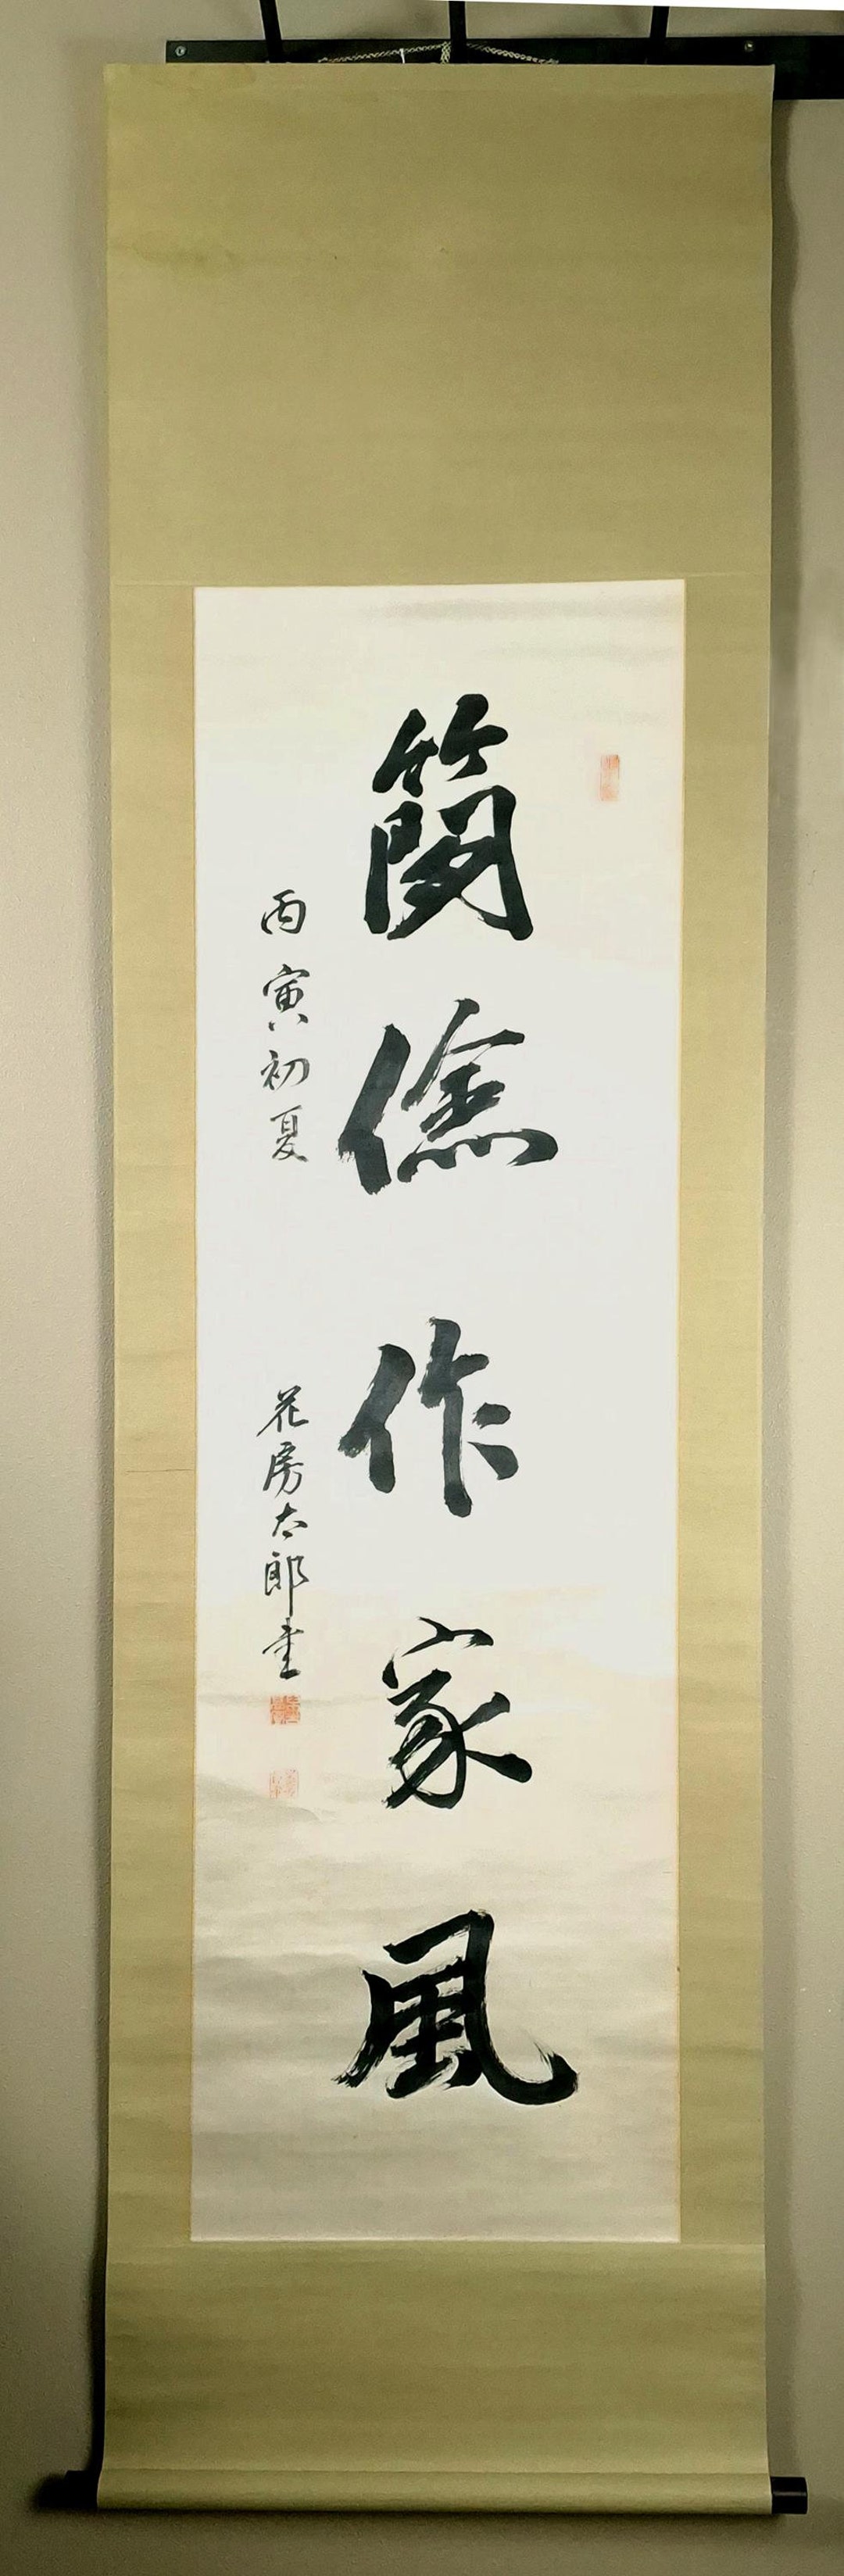 簡儉作家風
丙寅初夏 花房太郎書